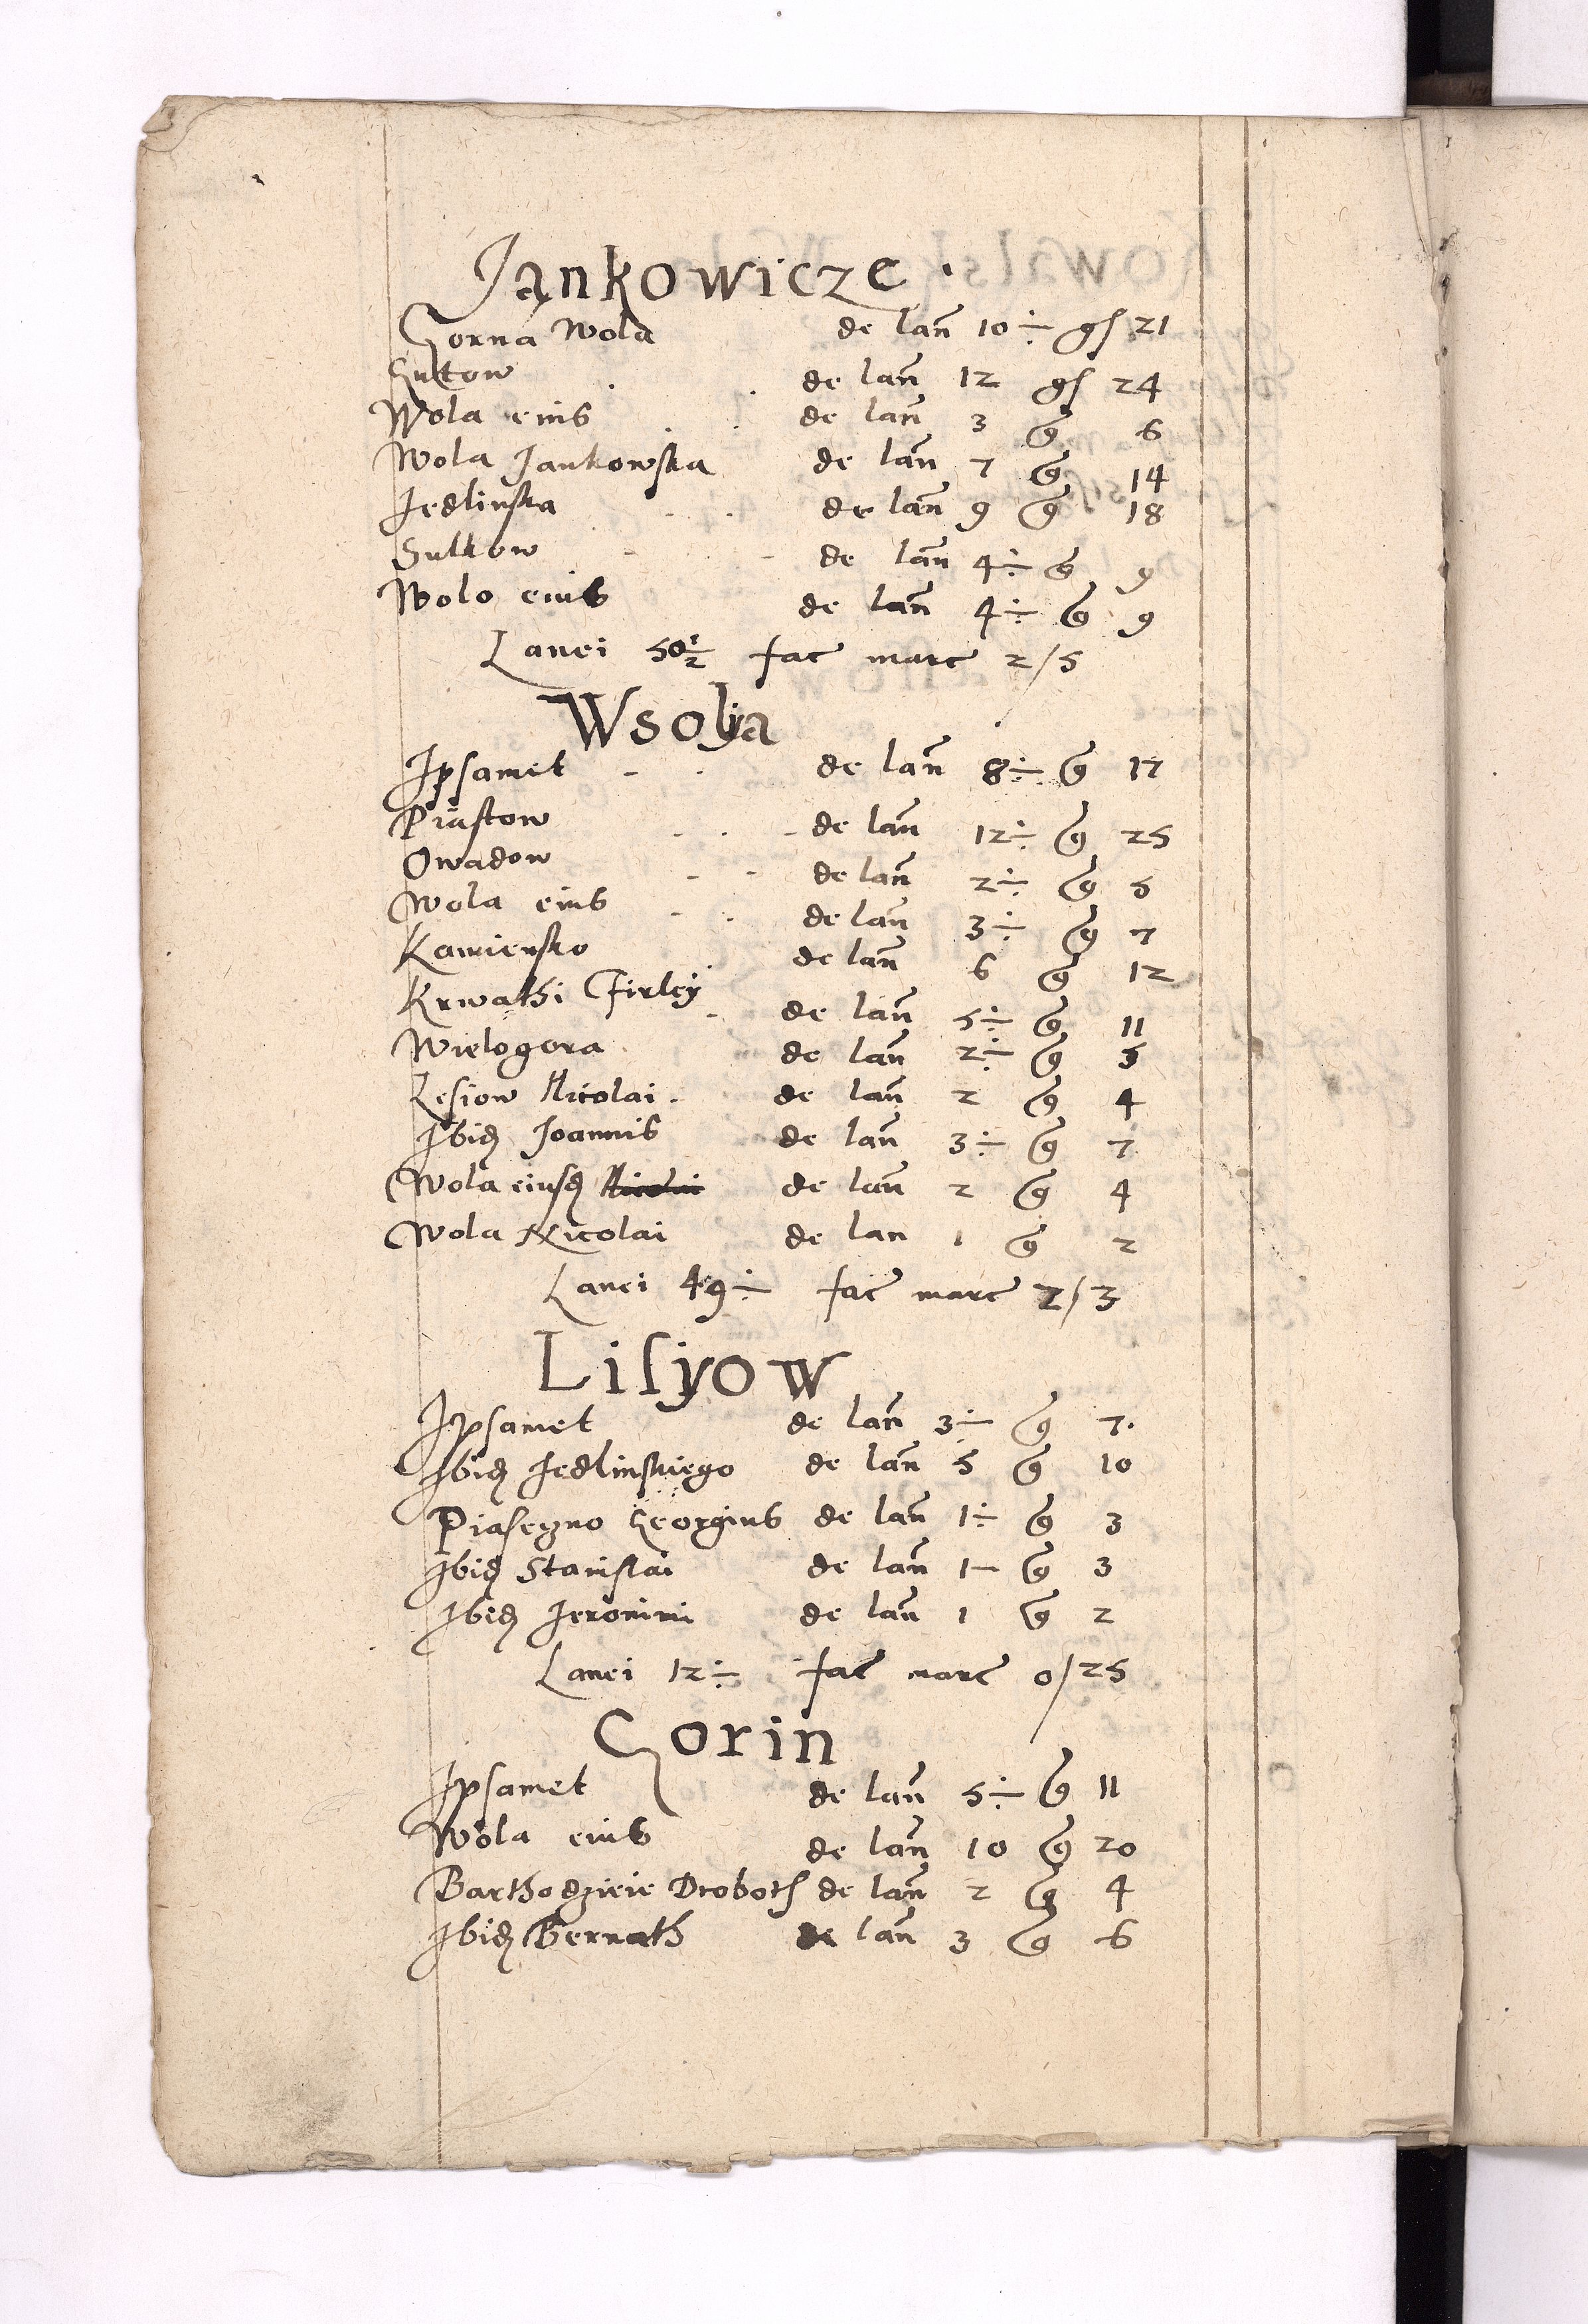 Jankowicze.
Gorna Wola de lan̄ 10 ÷ gſ 21
Gutow de lan̄ 12 gſ 24
Wola eius de lan̄ 3 g 6
Wola Jankowska de lan̄ 7 g 14
Jedlinska de lan̄ 9 g 18
Sulkow de lan̄ 4 ÷ g 9
Wolo eius de lan̄ 4 ÷ g 9
Lanei 50½ fac̄ marc̄ 2/5
Wsolya
Ipsamet de lan̄ 8 ÷ g 17
Piastow de lan̄ 12 ÷ g 25
Owadow de lan̄ 2 ÷ g 5
Wola eius de lan̄ 3 ÷ g 7
Kamiensko de lan̄ 6 g 12
Krwathi Firley de lan̄ 5 ÷ g 11
Wielogora de lan̄ 2 ÷ g 5
Lesiow Nicolai de lan̄ 2 g 4
Ibid Joannis de lan̄ 3 ÷ g 7
Wola eiusd de lan̄ 2 g 4
Wola Nicolai de lan 1 g 2
Lanei 49 ÷ fac̄ marc̄ 2/3
Lisyow
Ipsamet de lan̄ 3 ÷ g 7.
Ibid Jedlinskiego de lan̄ 5 g 10
Piaseczno Georgius de lan̄ 1 ÷ g 3
Ibid Stanislai de lan̄ 1 – g 3
Ibid Jeronimi de lan̄ 1 g 2
Lanei 12 ÷ fac̄ marc̄ 0/25
Gorin
Ipsamet de lan̄ 5 ÷ g 11
Wola eius de lan̄ 10 g 20
Barthodzieie Droboth de lan̄ 2 g 4
Ibid Bernath de lan̄ 3 g 6